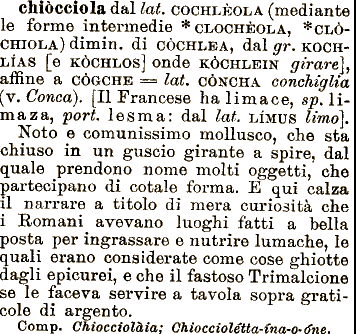 chiòcciola dal lat. COCHLÈOLA (mediante
le forme intermedie *CLOCHÈOLA, *CLÒ-
CHIOLA) dimin. di CÒCHLEA, dal gr. KOCH-
LÍAS [e KÒCHLOS] onde KÒCHLEIN girare],
affine a CÒGCHE = lat. CÒNCHA conchiglia
(v. Conca). [Il Francese ha limace, sp. li-
maza, port. lesma: dal lat. LÍMUS limo].
Noto e comunissimo mollusco, che sta
chiuso in un guscio girante a spire, dal
quale prendono nome molti oggetti, che
partecipano di cotale forma. E qui calza
il narrare a titolo di mera curiosità che
i Romani avevano luoghi fatti a bella
posta per ingrassare e nutrire lumache, le
quali erano considerate come cose ghiotte
dagli epicurei, e che il fastoso Trimalcione
se le faceva servire a tavola sopra grati-
cole di argento.
Comp. Chiocciolàia; Chiocciolétta-ína-o-óne.